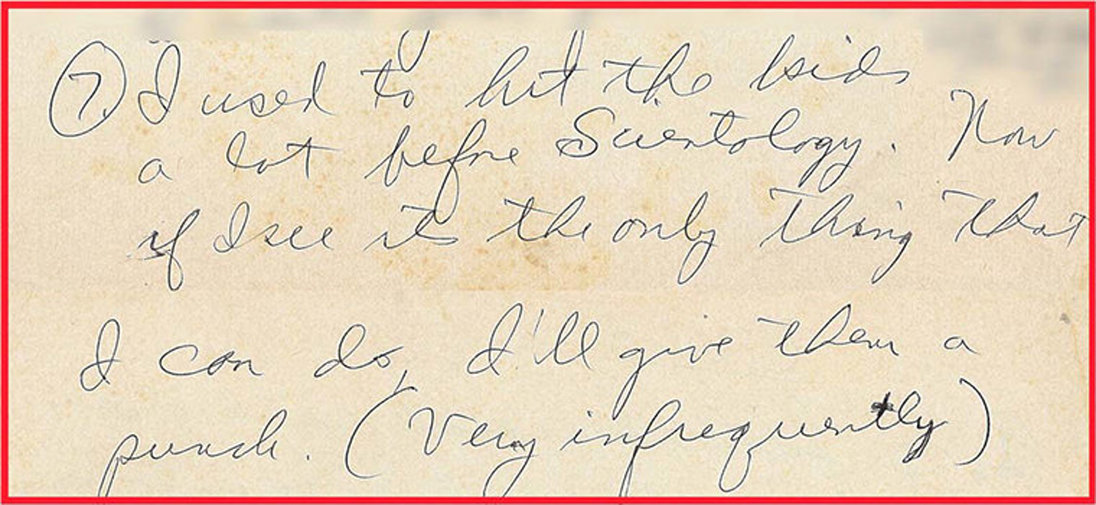 ⑦ I used to hit the kids
a lot before Scientology. Now
if I see its the only thing that
I can do, I'll give them a
punch. (Very infrequently)